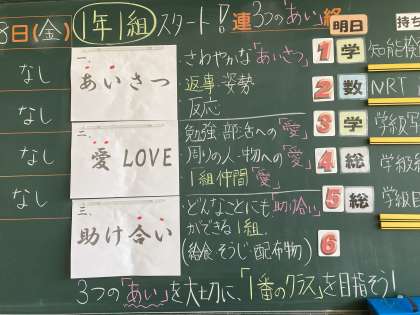 8日(金)
1年1組 スタート! 連 3つの「あい」 終
明日
持ち
なし
なし
なし
なし
一、
あいさつ
・さわやかな「あいさつ」
・返事・姿勢
・反応
二、
愛 LOVE
・勉強・部活への「愛」
・周りの人・物への「愛」
・1組仲間「愛」
三、
助け合い
・どんなことにも「助け合い」
ができる1組。
(給食・そうじ・配布物)
1 学 知能検
2 数 NRT
3 学 学級写
4 総 学級
5 総 学級目
6
3つの「あい」を大切に、「1番のクラス」を目指そう!